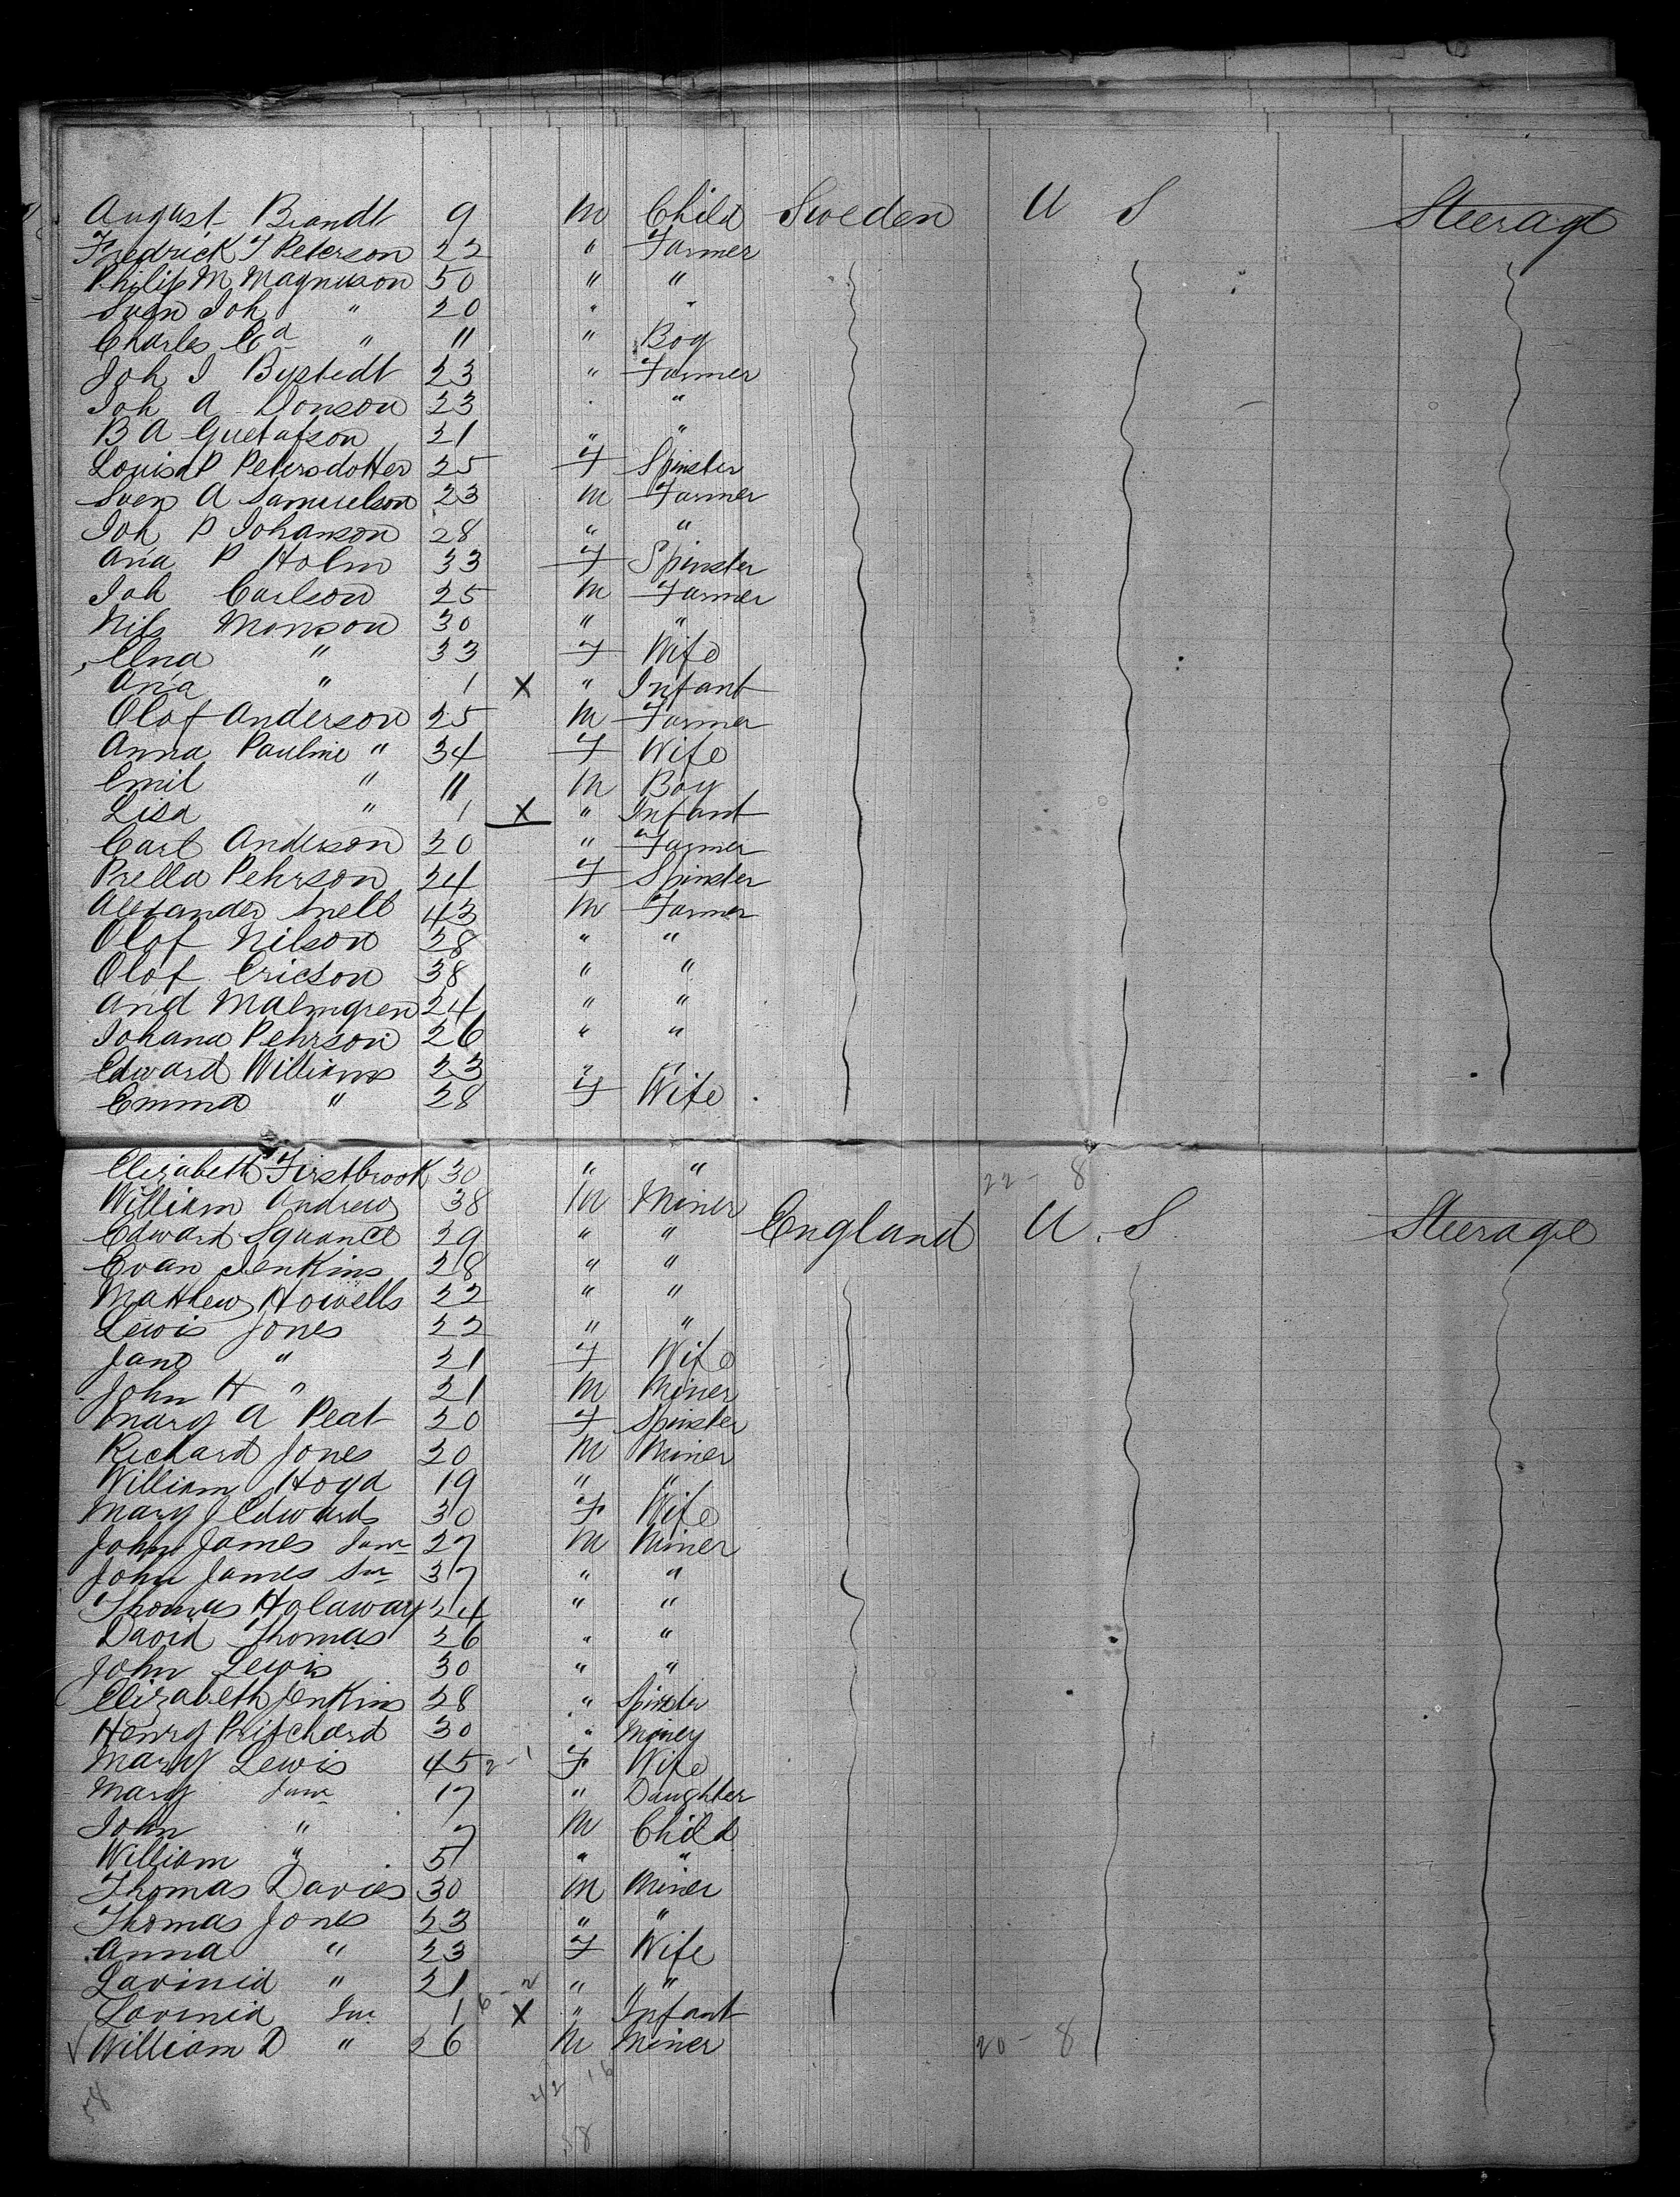 August Brandt 9 M Child Sweden U S Steerage
Fredrick T Peterson 22 " Farmer
Philip M Magnuson 50 " "
Sven Joh " 20 " "
Charles Ca " 11 " Boy
Joh J Bystedt 23 " Farmer
Joh A Donson 23 " "
B A Gustafson 21 " "
Louisa P Petersdotter 25 F Spinster
Sven A Samuelson 23 M Farmer
Joh P Johanson 28 " "
Ana P Holm 33 F Spinster
Joh Carlson 25 M Farmer
Nils Monson 30 " "
Elna " 33 F Wife
Ana " 1 X " Infant
Olof Anderson 25 M Farmer
Anna Pauline " 34 F Wife
Emil " 11 M Boy
Lisa " 1 X " Infant
Carl Anderson 20 " Farmer
Prella Pehrson 24 F Spinster
Alexander Snell 43 M Farmer
Olof Nilson 28 " "
Olof Ericson 38 " "
And Malmgren 24 " "
Johana Pehrson 26 " "
Edward Williams 23 " "
Emma " 28 F Wife
Elizabeth Firstbrook 30 " " 22 - 8
William Andrews 38 M Miner
Edward Squance 29 " " England U. S. Steerage
Evan Jenkins 28 " "
Matthew Howells 22 " "
Lewis Jones 22 " "
Jane " 21 F Wife
John H " 21 M Miner
Mary A Peat 20 F Spinster
Richard Jones 20 M Miner
William Hoyd 19 " "
Mary J Edwards 30 F Wife
John James Junr 27 M Miner
John James Snr 37 " "
Thomas Holaway 24 " "
David Thomas 26 " "
John Lewis 30 " "
Elizabeth Jenkins 28 " Spinster
Henry Pritchard 30 " Miney
Mary Lewis 45 2-1 F Wife
Mary Junr 17 " Daughter
John " 7 M Child
William " 5 " "
Thomas Davies 30 M Miner
Thomas Jones 23 " "
Anna " 23 F Wife
Lavinia " 21 " "
Lavinia Jnr 1 6-2 X " Infant
William D " 26 M Miner 20 - 8
58 42 16
58